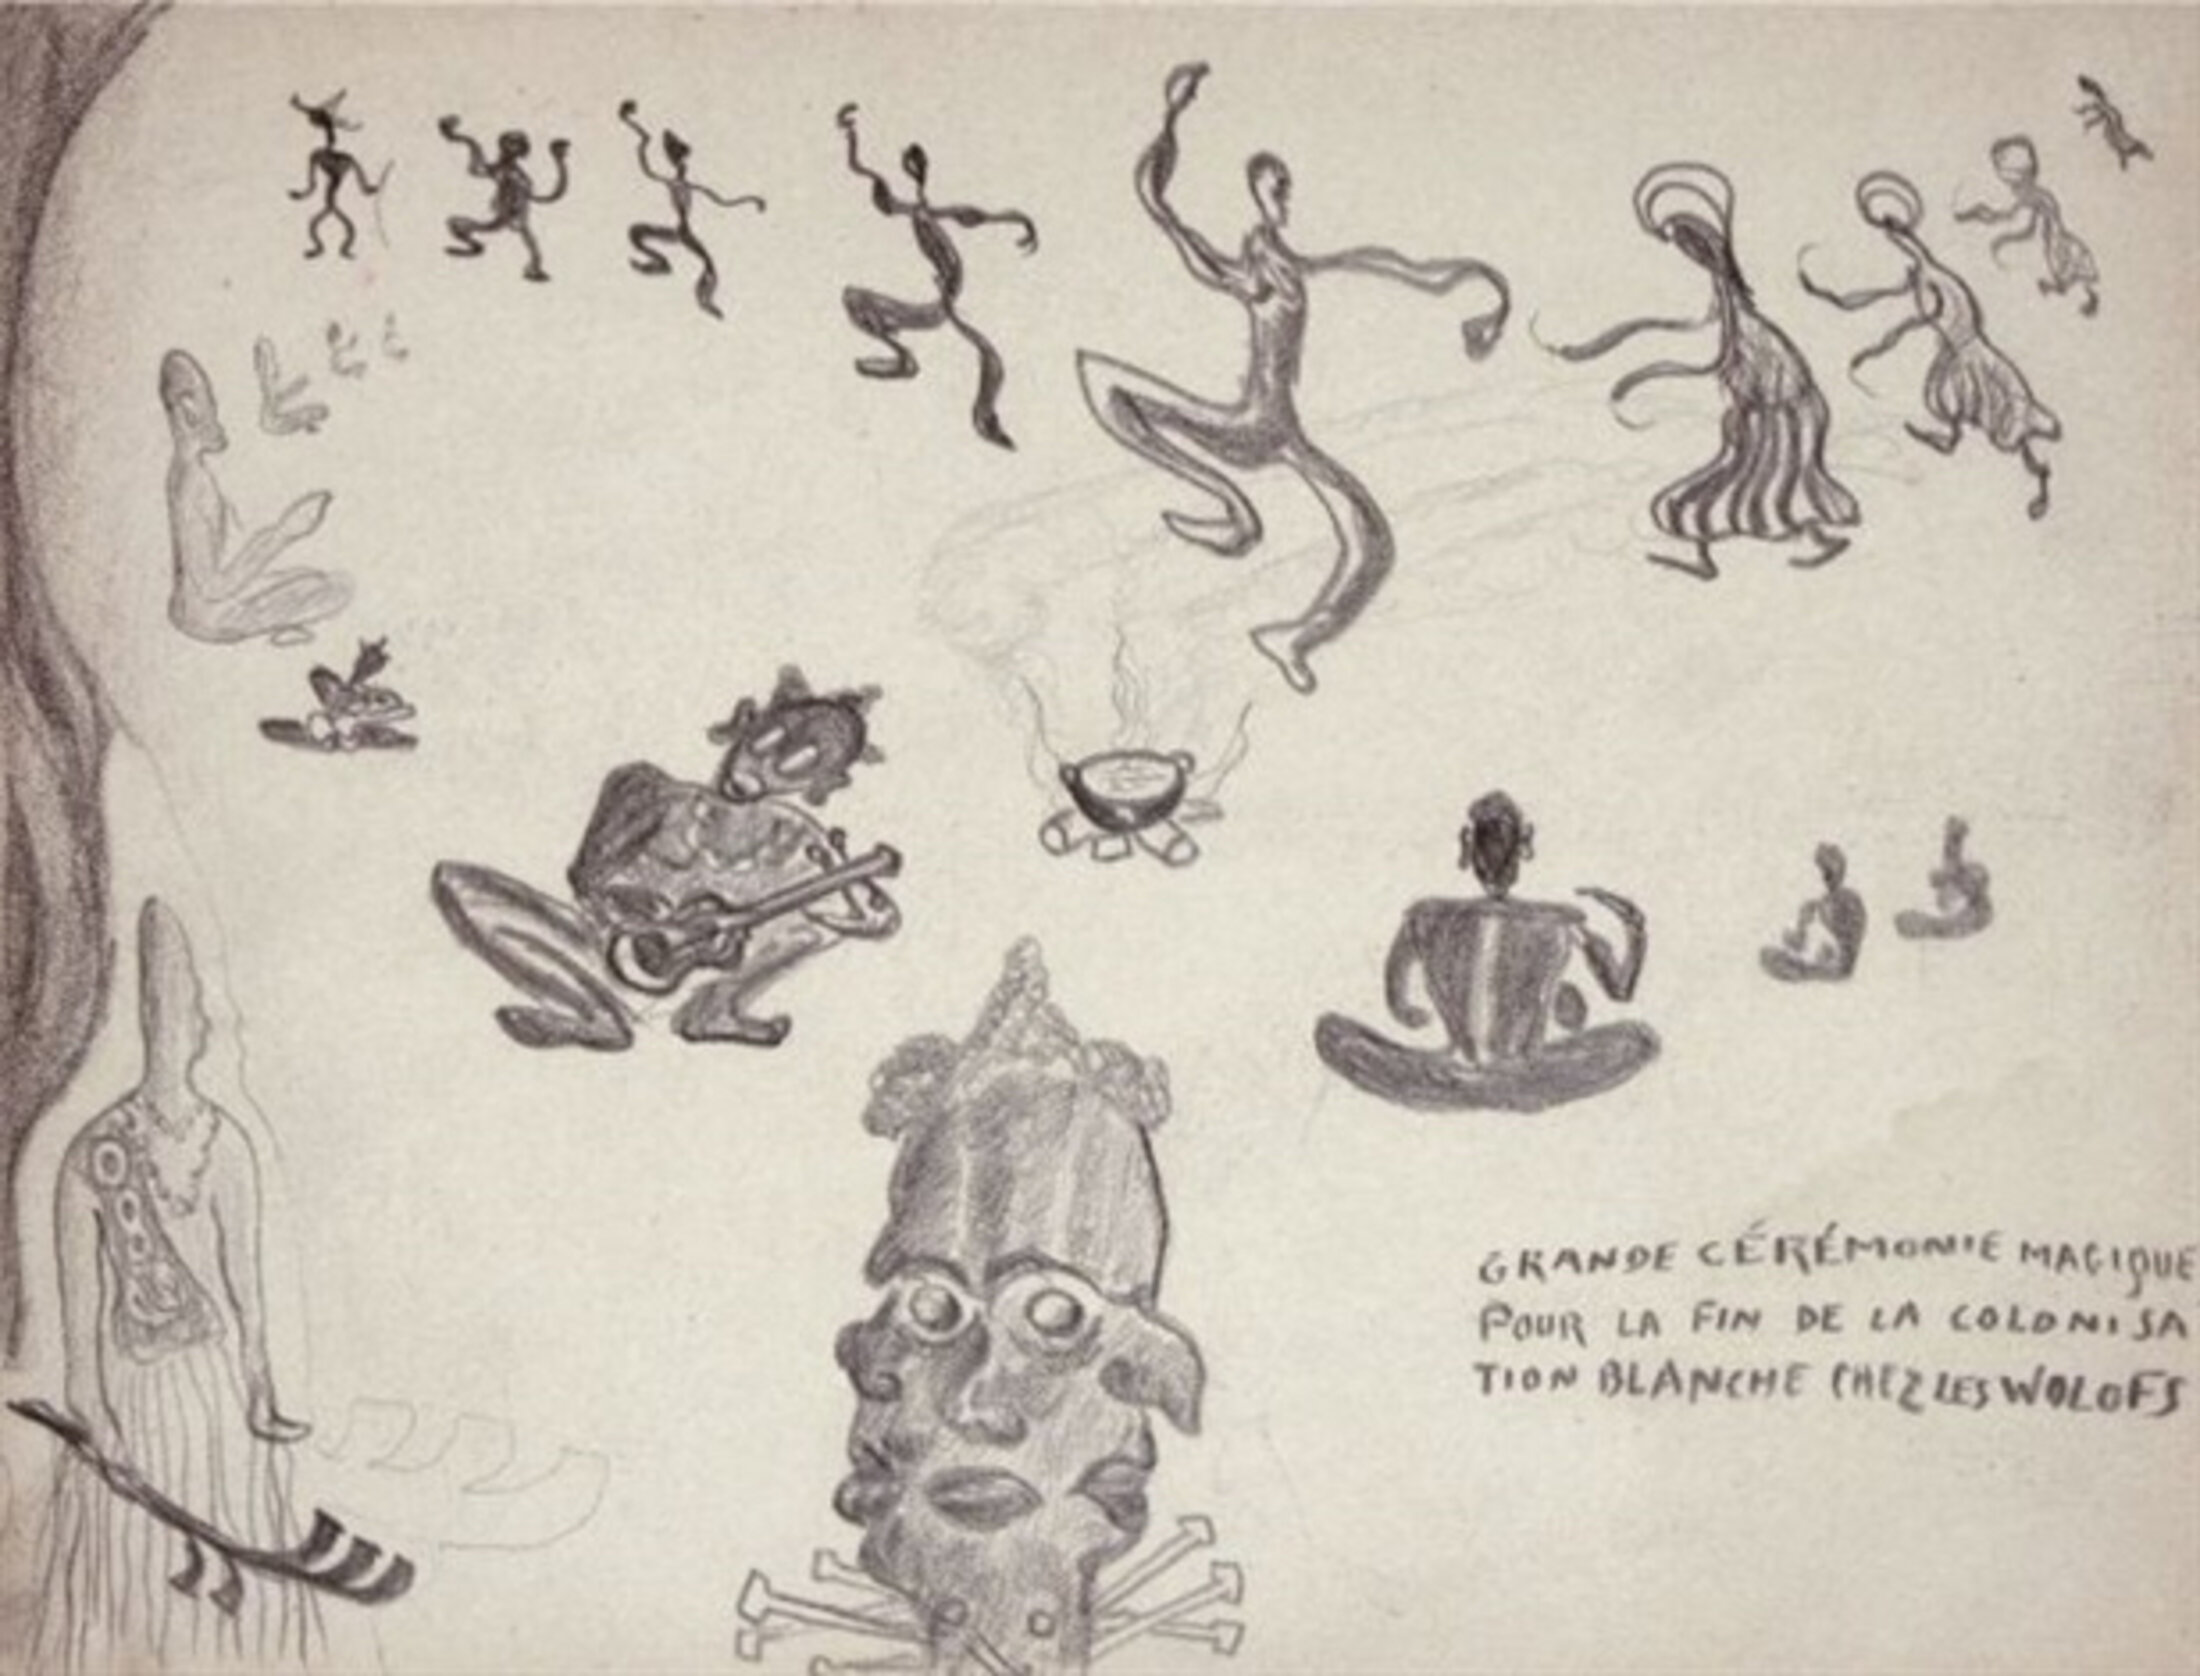 GRANDE CÉRÉMONIE MAGIQUE
POUR LA FIN DE LA COLONISA
TION BLANCHE CHEZ LES WOLOFS